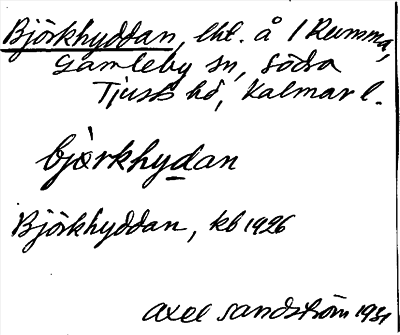 Björkhyddan, lht. å 1 Rumma,
Gamleby sn, Södra
Tjusts hd, Kalmar l.
bjò̀rkhydan
Björkhyddan, kb 1926
Axel Sandström 1931